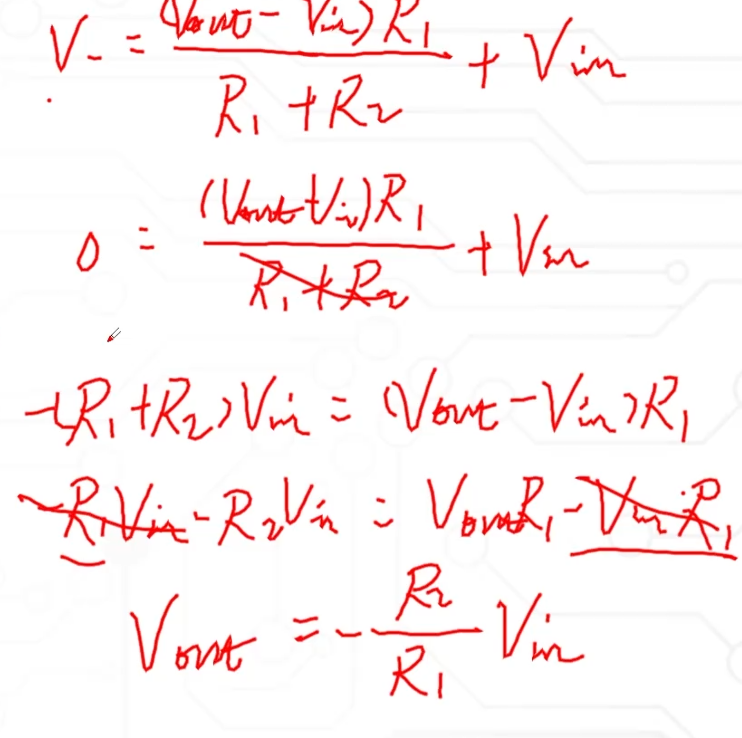 V₋ = (Vout - Vin)R₁ / R₁ + R₂ + Vin
0 = (Vout - Vin)R₁ / R₁ + R₂ + Vin
-(R₁+R₂)Vin = (Vout - Vin)R₁
-R₁Vin - R₂Vin = VoutR₁ - VinR₁
Vout = - R₂ / R₁ Vin